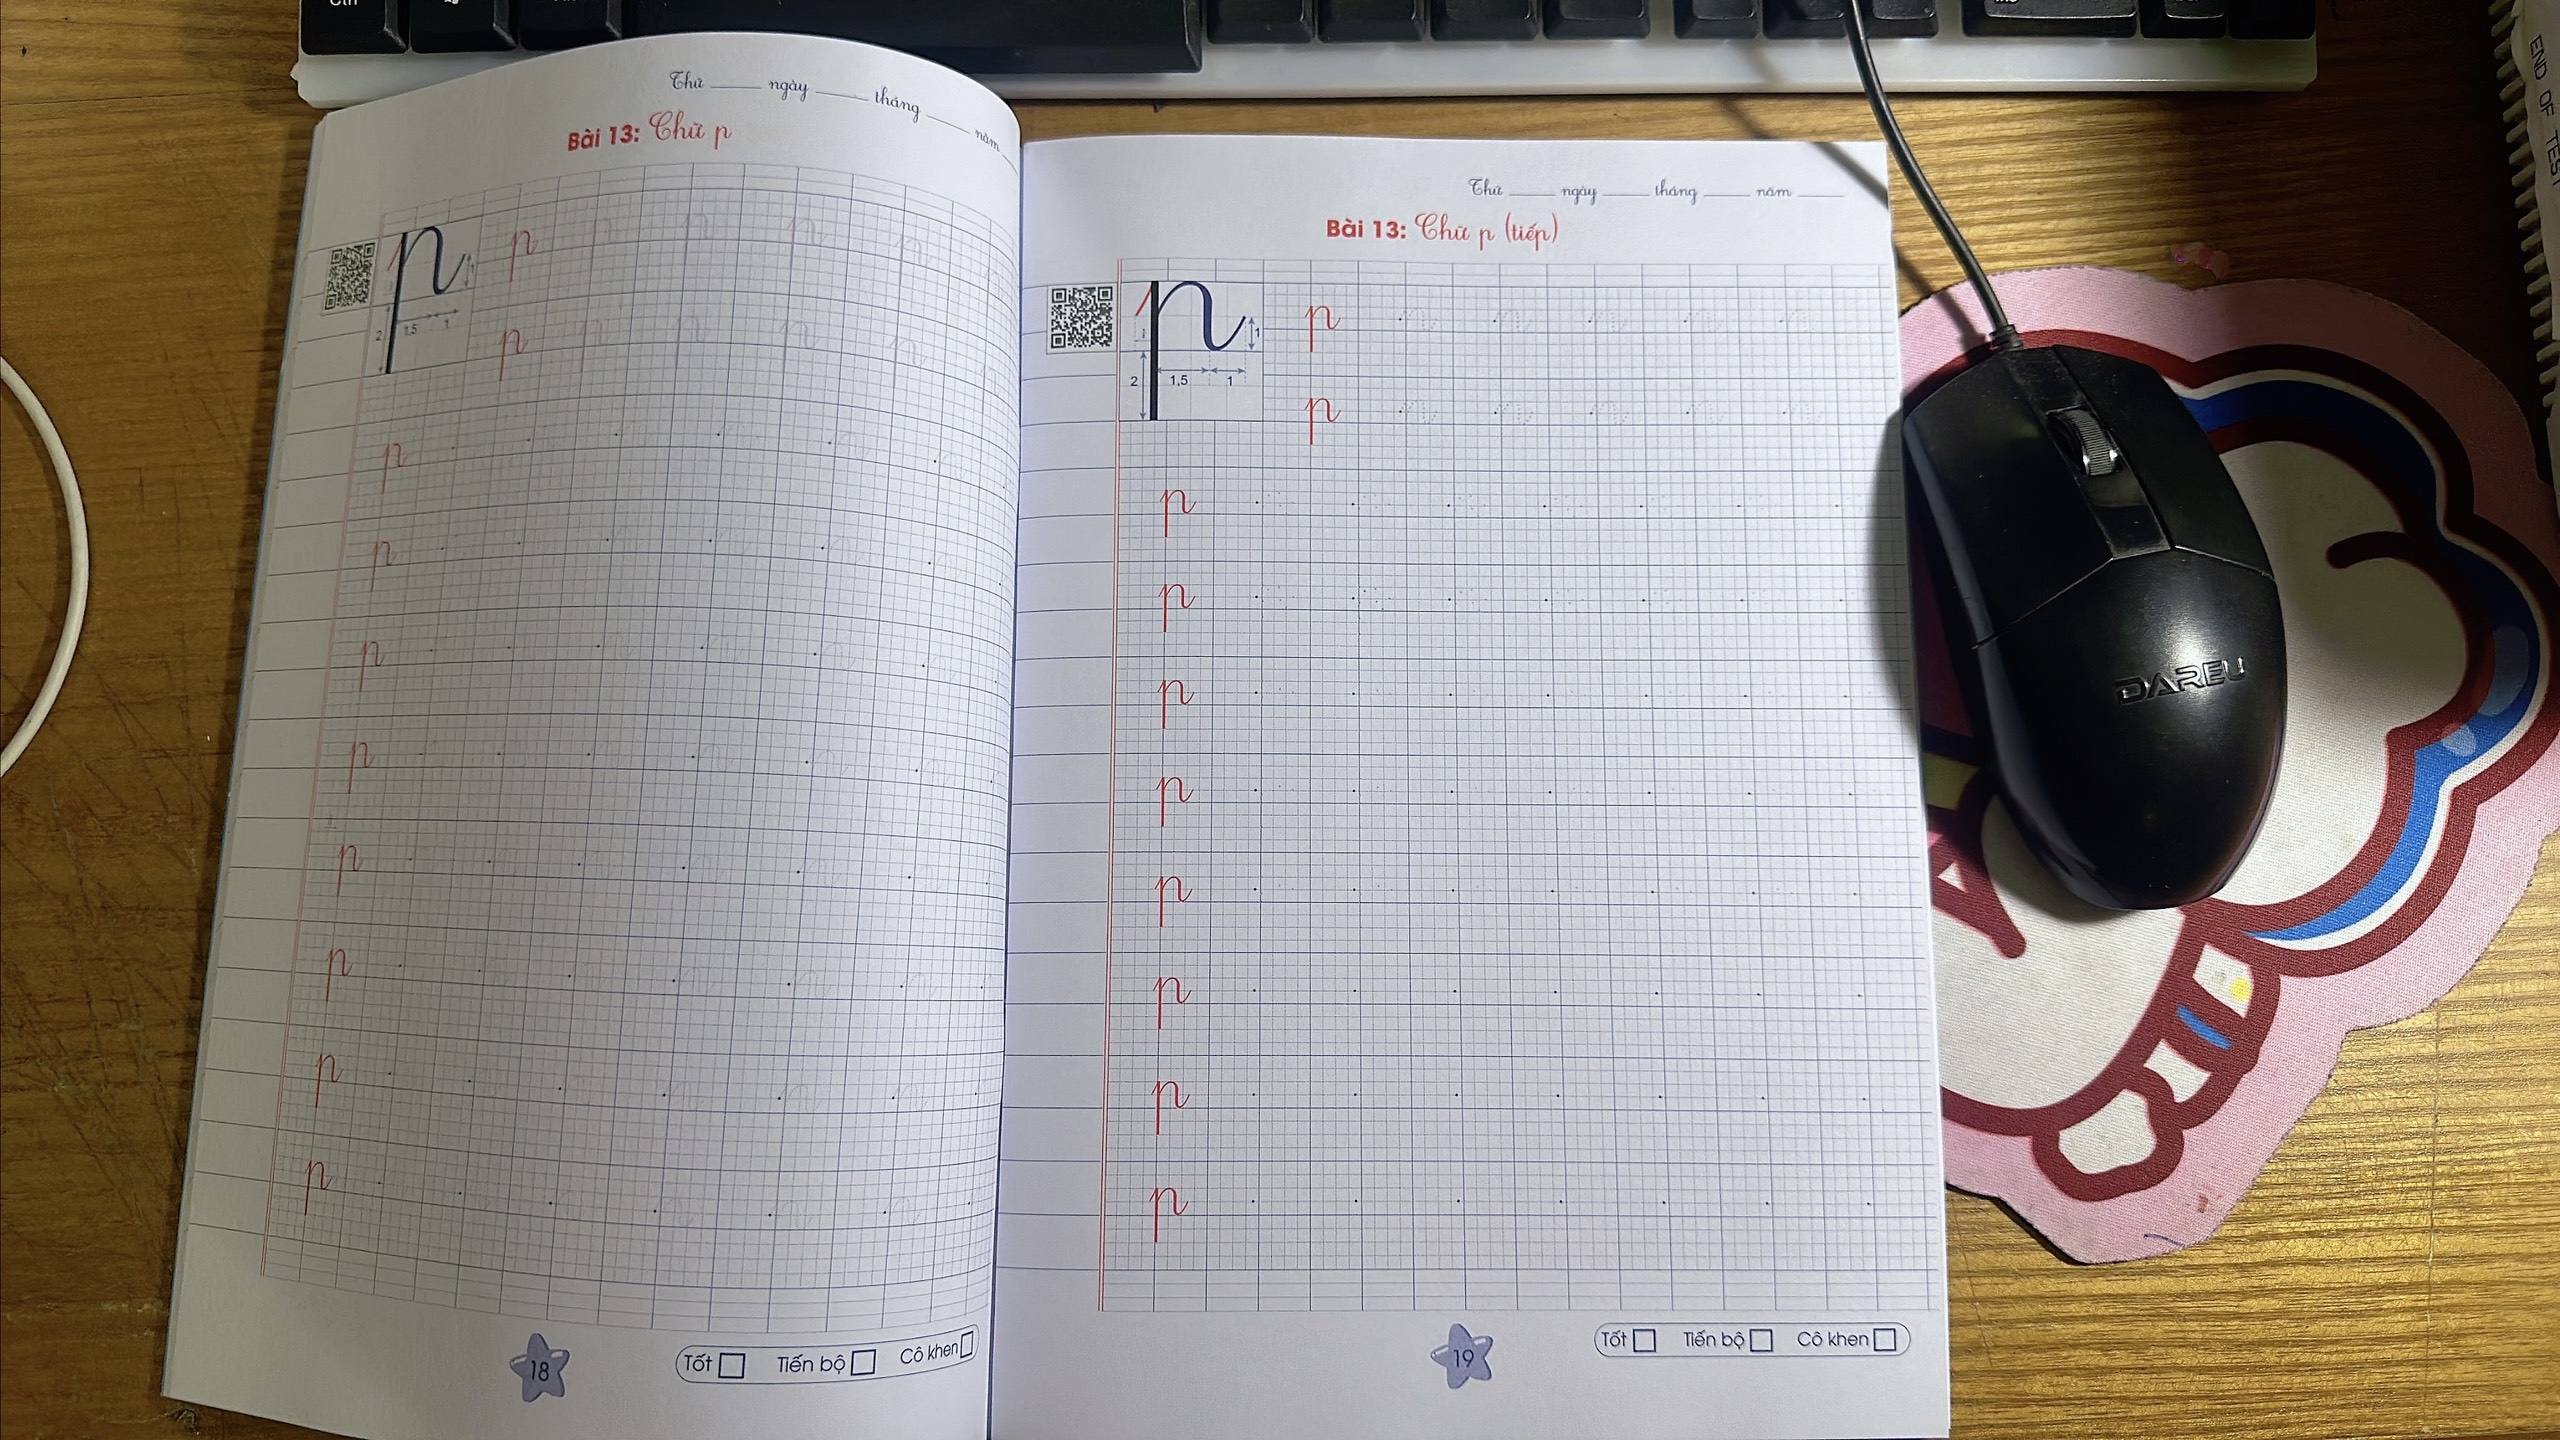 Ctrl
END OF TEST
Thứ ____ ngày ____ tháng ____ năm
Bài 13: Chữ p
1
p
2
1,5
1
p
p
p
p
p
p
p
p
p
18
Tốt
Tiến bộ
Cô khen
Thứ ____ ngày ____ tháng ____ năm ____
Bài 13: Chữ p (tiếp)
p p
1
2
1,5
1
p
p
p
p
p
p
p
p
p
19
Tốt
Tiến bộ
Cô khen
DAREU